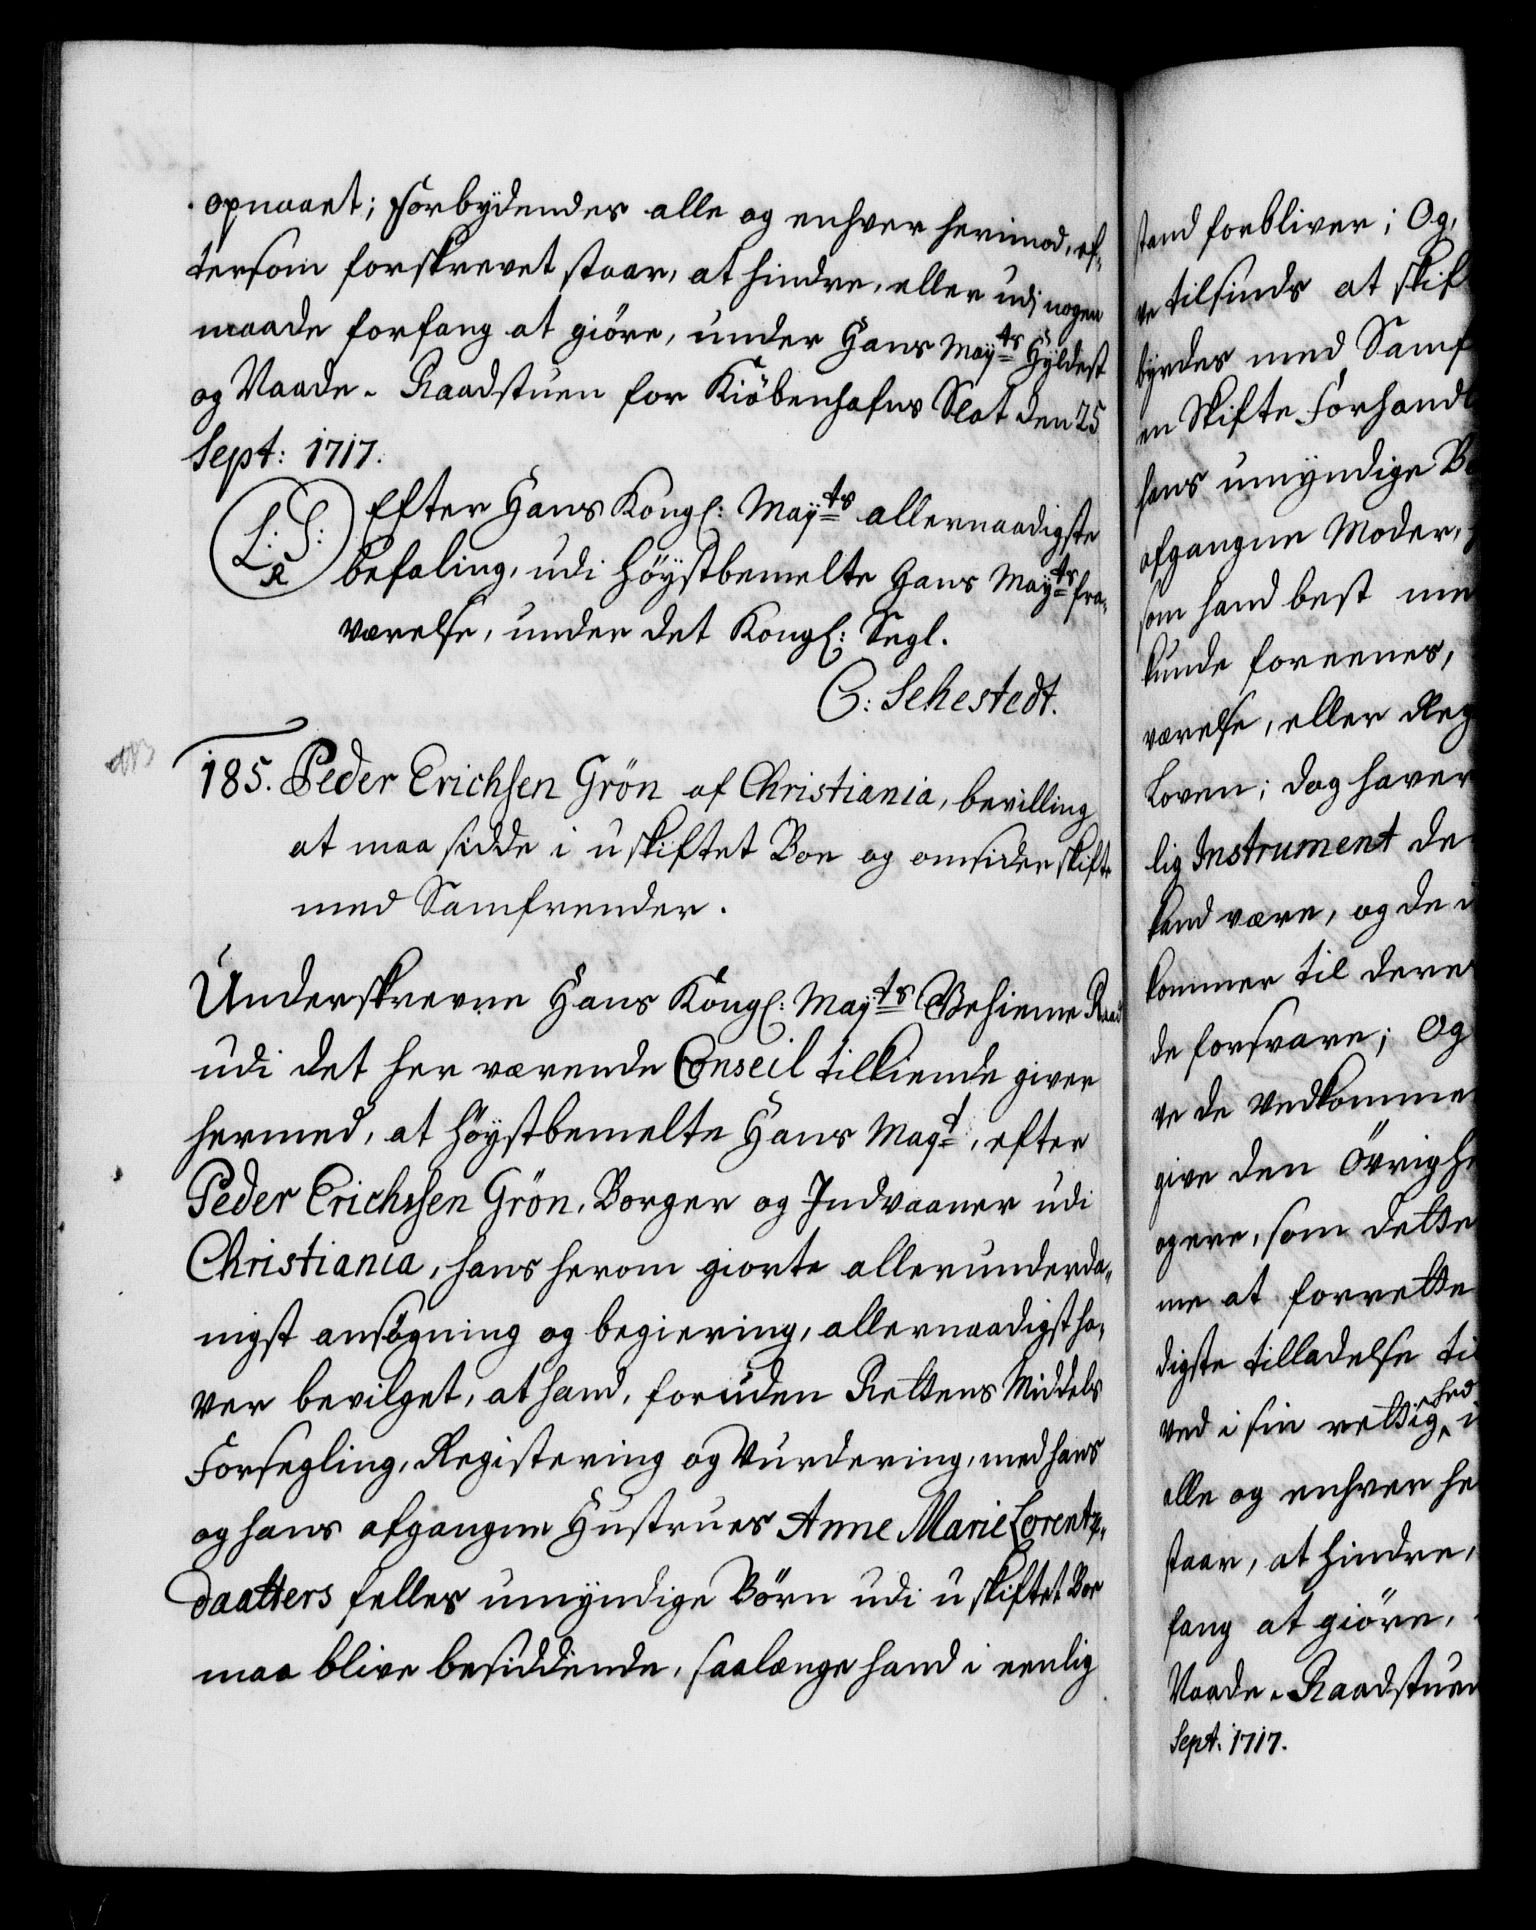 opnaaet; Forbydendes alle og enhver herimod, ef-
tersom forskrevet staar, at hindre, eller udj nogen
maade forfang at giöre, under Hans Mayts Hyldest
og Naade. Raadstuen for Kiöbenhafns Slot den 25
Sept: 1717.
L: S:
R
Efter Hans Kongl: Mayts allernaadigste
befaling, udi höystbemelte Hans Mayts fra-
værelse, under det Kongl: Segl.
C: Sehestedt.
185. Peder Erichsen Grön af Christiania, bevilling
at maa sidde i uskiftet Boe og omsider skifte
med Samfrender.
Underskrevne Hans Kongl: Mayts Gehieme Raad
udi det her værende Conseil tilkiende giver
hermed, at höystbemelte Hans Mayt, efter
Peder Erichssen Grön, Borger og Indvaaner udi
Christiania, hans herom giorte allerunderda-
nigst ansögning og begiering, allernaadigst ha-
ver bevilget, at hand, foruden Rettens Middels
Forsegling, Registering og Vurdering, med hans
og hans afgangne Hustrues Anne Marie Lorentz-
daatters felles umyndige Börn udi uskiftet Boe
maa blive besiddende, saalænge hand i eenlig
stand forbliver; Og,
ve tilsinds at skif
byrdes med Samf
en Skifte Forhandl
hans umyndige Bö
afgangne Moder,
som hand best me
kunde foreenes,
værelse, eller Reg
Loven; dog haver
lig Instrument de
kand være, og de i
kommer til deres
de forsvare; Og
ve de Vedkomme
give den Övrighe
ogere, som dette
me at forrette
digste tilladelse ti
ved i sin rettighed i
alle og enhver he
staar, at hindre,
fang at giöre,
Naade. Raadstuen
Sept: 1717.